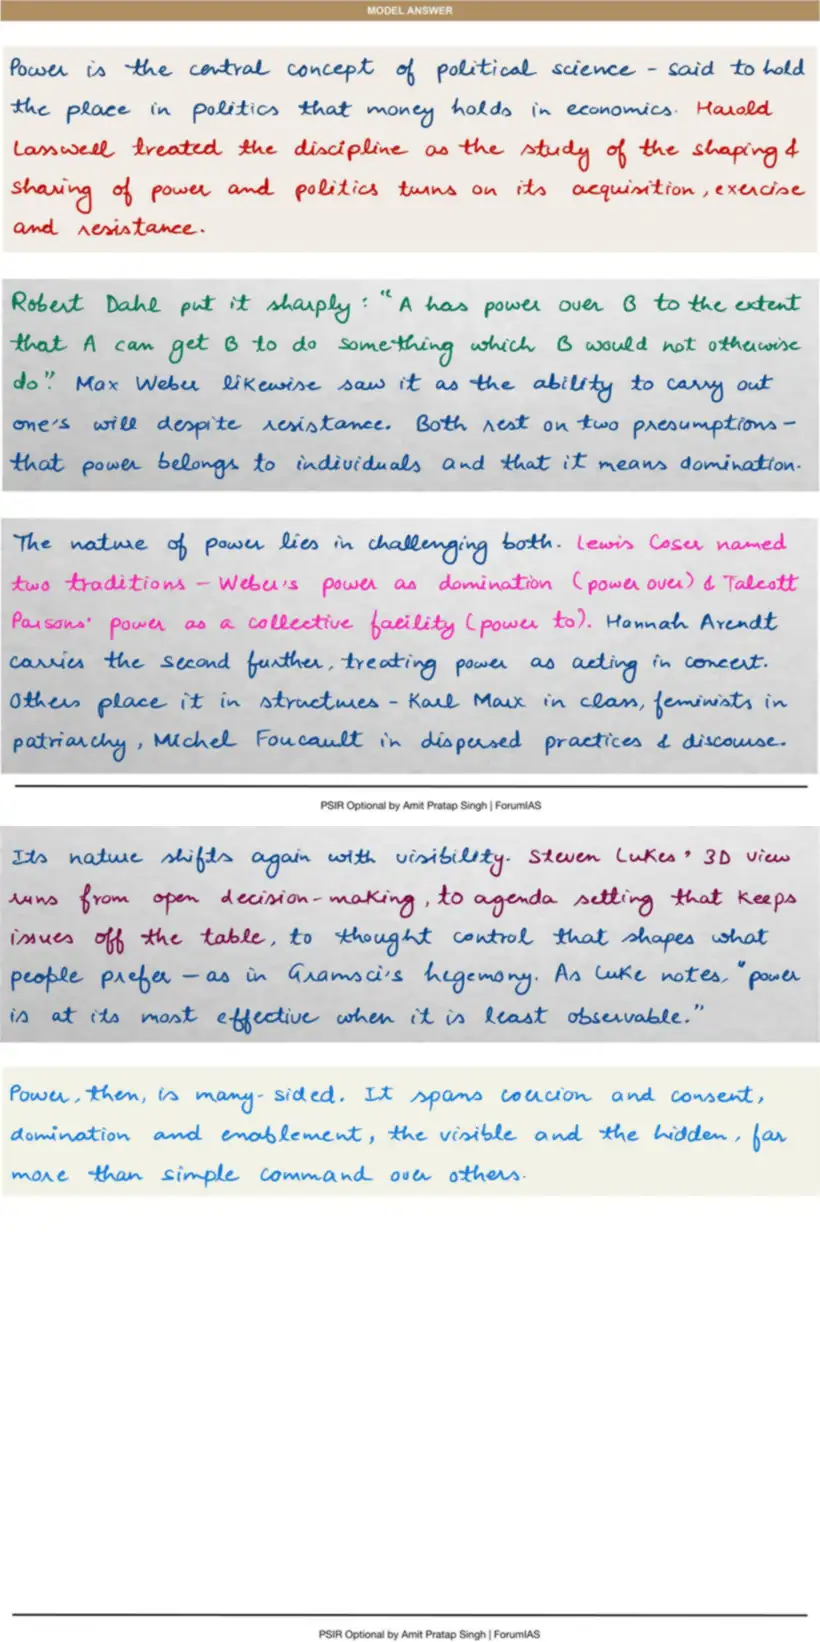 MODEL ANSWER
Power is the central concept of political science – said to hold
the place in politics that money holds in economics. Harold
Lasswell treated the discipline as the study of the shaping &
sharing of power and politics turns on its acquisition, exercise
and resistance.
Robert Dahl put it sharply: "A has power over B to the extent
that A can get B to do something which B would not otherwise
do". Max Weber likewise saw it as the ability to carry out
one's will despite resistance. Both rest on two presumptions –
that power belongs to individuals and that it means domination.
The nature of power lies in challenging both. Lewis Coser named
two traditions – Weber's power as domination (power over) & Talcott
Parsons' power as a collective facility (power to). Hannah Arendt
carries the second further, treating power as acting in concert.
Others place it in structures – Karl Marx in class, feminists in
patriarchy, Michel Foucault in dispersed practices & discourse.
PSIR Optional by Amit Pratap Singh | ForumIAS
Its nature shifts again with visibility. Steven Lukes' 3D view
runs from open decision-making, to agenda setting that keeps
issues off the table, to thought control that shapes what
people prefer – as in Gramsci's hegemony. As Luke notes, "power
is at its most effective when it is least observable."
Power, then, is many-sided. It spans coercion and consent,
domination and enablement, the visible and the hidden, far
more than simple command over others.
PSIR Optional by Amit Pratap Singh | ForumIAS